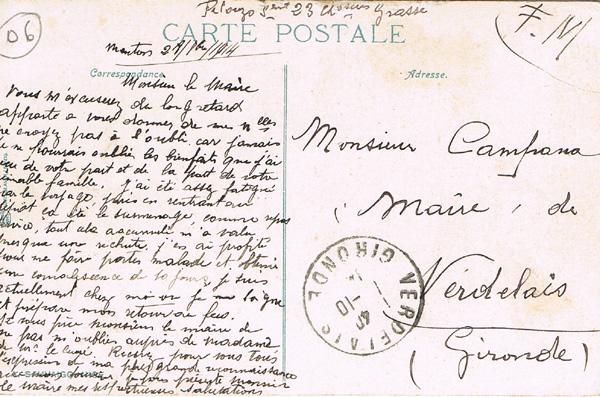 06
Pelouzo Sent 23 chasseurs Grasse
F. M
CARTE POSTALE
Menton 1914
Correspondance
Adresse.
Monsieur le Maire
Vous m'excuserez du long retard
apporté à vous donner de mes nelles
ne croyez pas à l'oubli car jamais
je ne pourrais oublier les bienfaits que j'ai
reçu de votre part et de la part de votre
aimable famille. J'ai été assez fatigué
par le voyage, puis en rentrant au
dépôt ça été le surmenage, comme
service, tout ça accumulé m'a valu
presque une rechute. J'en ai profité
pour me faire porter malade et obtenir
une convalescence de 10 jours, je suis
actuellement chez moi où je me soigne
et prépare mon retour au feu.
Je vous prie monsieur le maire de
ne pas m'oublier auprès de madame
de Mr le curé. Recevez pour vous tous
l'expression de ma plus grande reconnaissance
monsieur
le Maire mes respectueuses salutations
Monsieur Campana
Maire de
Verdelais
(Gironde)
VERDELAIS GIRONDE